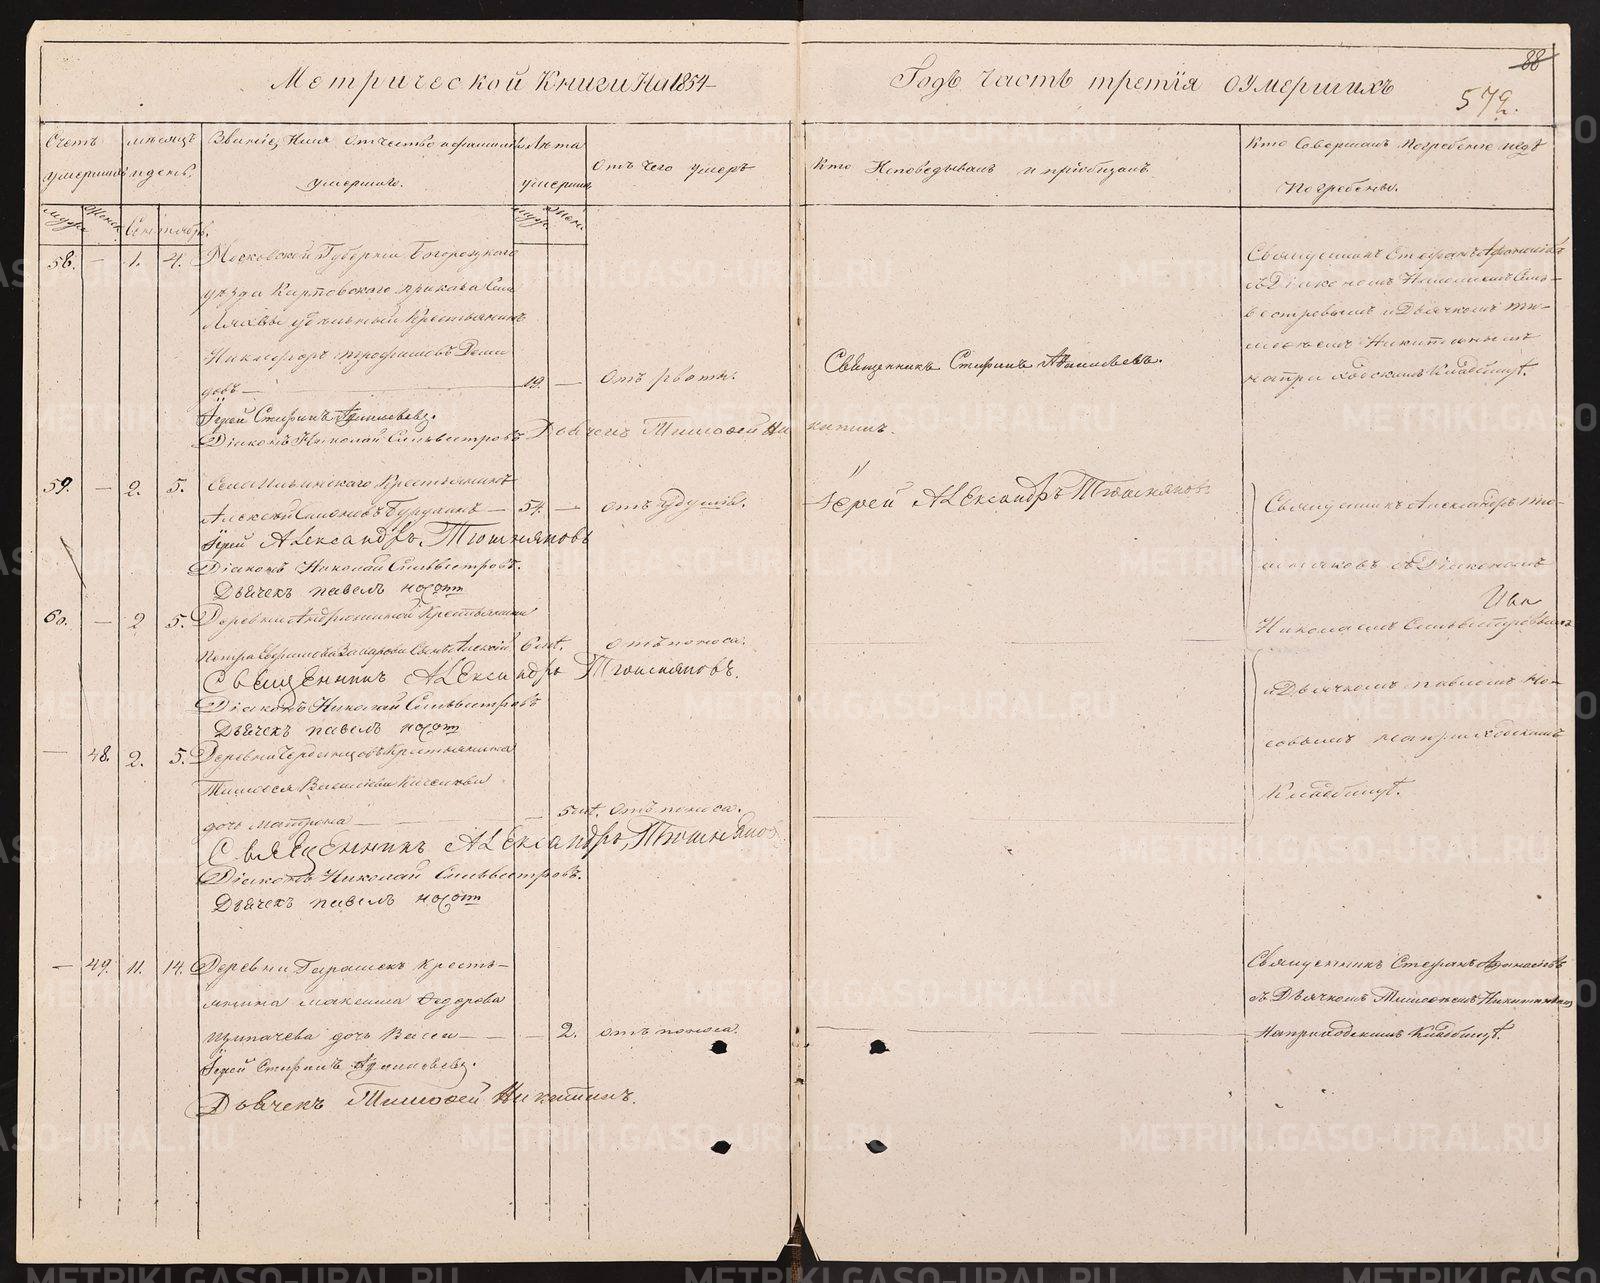 Метрической Книги На 1854
Годъ часть третія о Умершихъ
88
579.
Счетъ умершихъ
мѣсяцъ и день.
Званіе, Имя отчество и фамилія умершаго.
Лѣта умершихъ
Отъ Чего умеръ
Кто Исповѣдывалъ и пріобщалъ.
Кто Совершалъ Погребеніе и гдѣ Погребены.
Сентябрь.
58. — 1. 4. Московской Губерніи Богородскаго
уѣзда Карповскаго приказа Села
удѣльный Крестьянинъ
Никифоръ Трофимовъ Деми
довъ — 19. — отъ рвоты.
Священникъ Стефанъ Афанасьевъ.
Священникъ Стефанъ Афанасьевъ
съ Діакономъ Николаемъ Силь-
вестровымъ и Дьячкомъ Ти-
мофеемъ Никитинымъ
на приходскомъ Кладбищѣ.
Іерей Стефанъ Афанасьевъ.
Діаконъ Николай Сильвестровъ Дьячекъ Тимофей Никитинъ.
59. — 2. 5. Села Ильинскаго Крестьянинъ
Алексей — 54. — отъ удушья.
Іерей Александръ Тюшняковъ
Іерей Александръ Тюшняковъ
Діаконъ Николай Сильвестровъ.
Дьячекъ павелъ носовъ
Священникъ Александръ Тю-
шняковъ съ Діакономъ
Николаемъ Сильвестровымъ
и Дьячкомъ павломъ Но-
совымъ на приходскомъ
Кладбищѣ.
60. — 2 5. Деревни Крестьянина
Петра Захарова сынъ Алексій 6 лѣт. отъ поноса.
Священникъ Александръ Тюшняковъ.
Діаконъ Николай Сильвестровъ
Дьячекъ павелъ носовъ
— 48. 2. 5. Деревни Крестьянина
Тимофея Васильева
дочь Матрона — 5 лѣт. отъ поноса.
Священникъ Александръ Тюшняковъ
Діаконъ Николай Сильвестровъ.
Дьячекъ павелъ носовъ
— 49. 11. 14. Деревни Гарашекъ кресть-
янина Максима Федорова
Щипачева дочь Васса — — 2. отъ поноса.
Іерей Стефанъ Афанасьевъ.
Дьячекъ Тимофей Никитинъ.
Священникъ Стефанъ Афанасьевъ
съ Дьячкомъ Тимофеемъ Никитинымъ
На приходскомъ Кладбищѣ.
METRIKI.GASO-URAL.RU